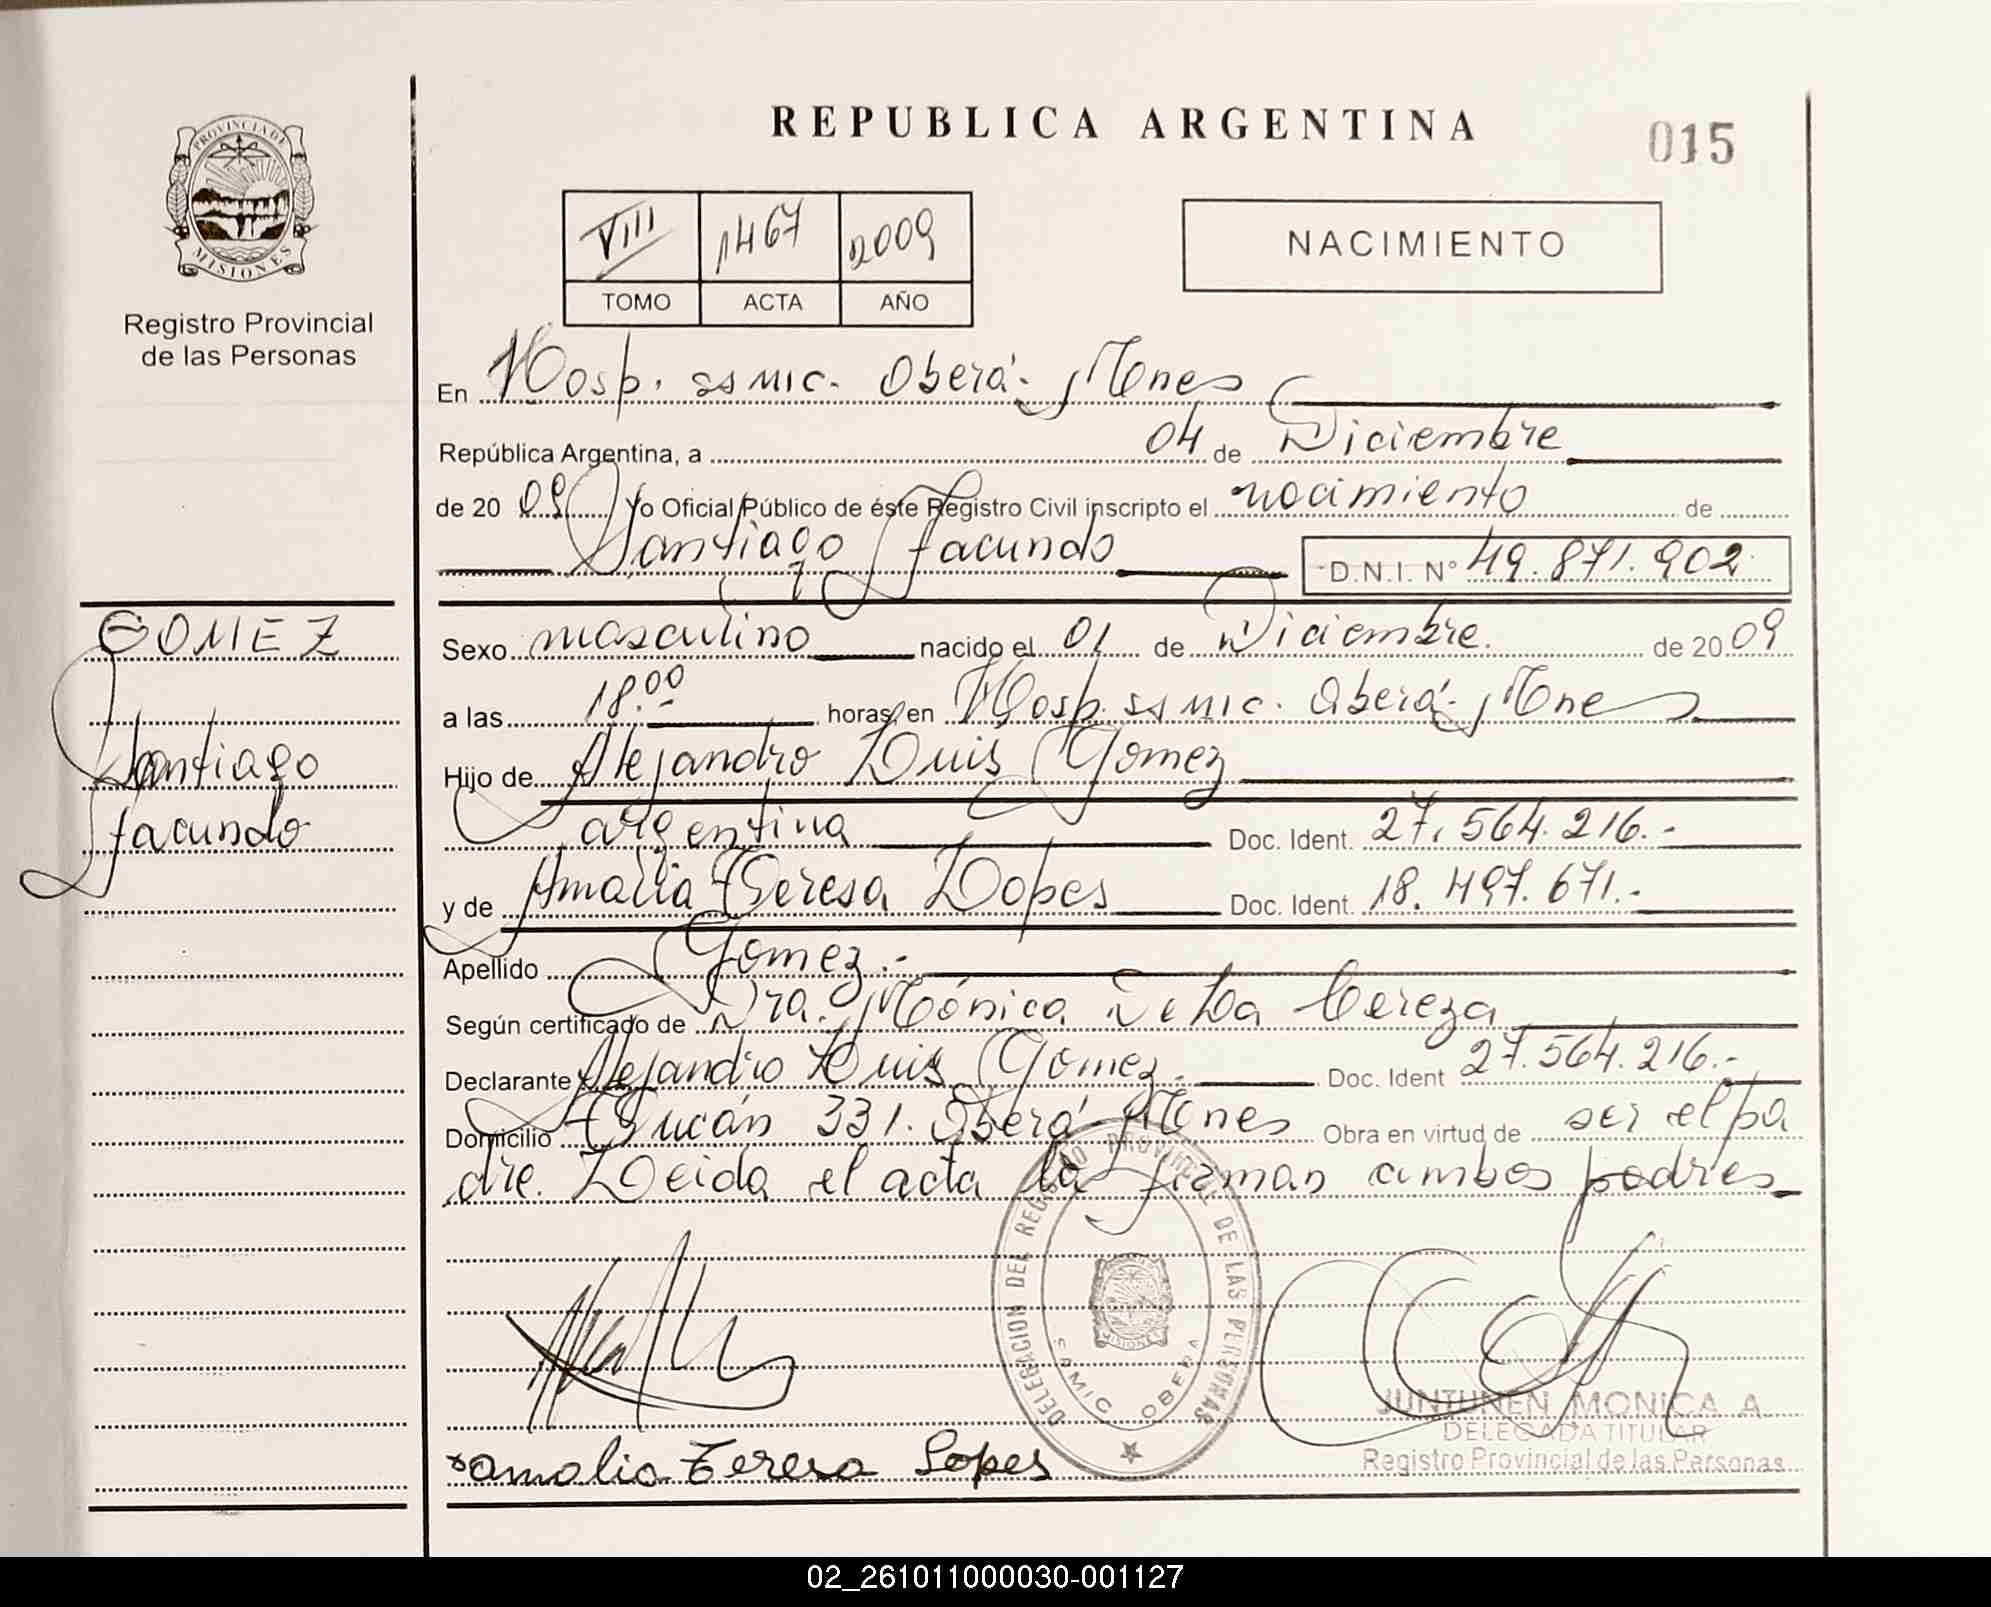 REPUBLICA ARGENTINA
015
PROVINCIA DE MISIONES
Registro Provincial
de las Personas
VIII 1467 2009
TOMO ACTA AÑO
NACIMIENTO
En Hosp. ssmic. Oberá. Mnes
República Argentina, a 04 de Diciembre
de 20 09 Yo Oficial Público de éste Registro Civil inscripto el nacimiento de
Santiago Facundo D.N.I. N° 49.871.902
GOMEZ
Santiago
Facundo
Sexo masculino nacido el 01 de Diciembre. de 20 09
a las 18.00 horas, en Hosp. ssmic. Oberá. Mnes
Hijo de Alejandro Luis Gomez
argentina Doc. Ident. 27.564.216.-
y de Amalia Teresa Lopes Doc. Ident. 18.497.671.-
Apellido Gomez.-
Según certificado de Dra. Mónica De La Cereza
Declarante Alejandro Luis Gomez. Doc. Ident 27.564.216.-
Domicilio Tucán 331. Oberá Mnes Obra en virtud de ser el pa
dre. Leida el acta la firman ambos padres
DELEGACION DEL REGISTRO PROVINCIAL DE LAS PERSONAS
OBERA
JUNTUNEN MONICA A.
DELEGADA TITULAR
Registro Provincial de las Personas
xamalia Teresa Lopes
02_261011000030-001127